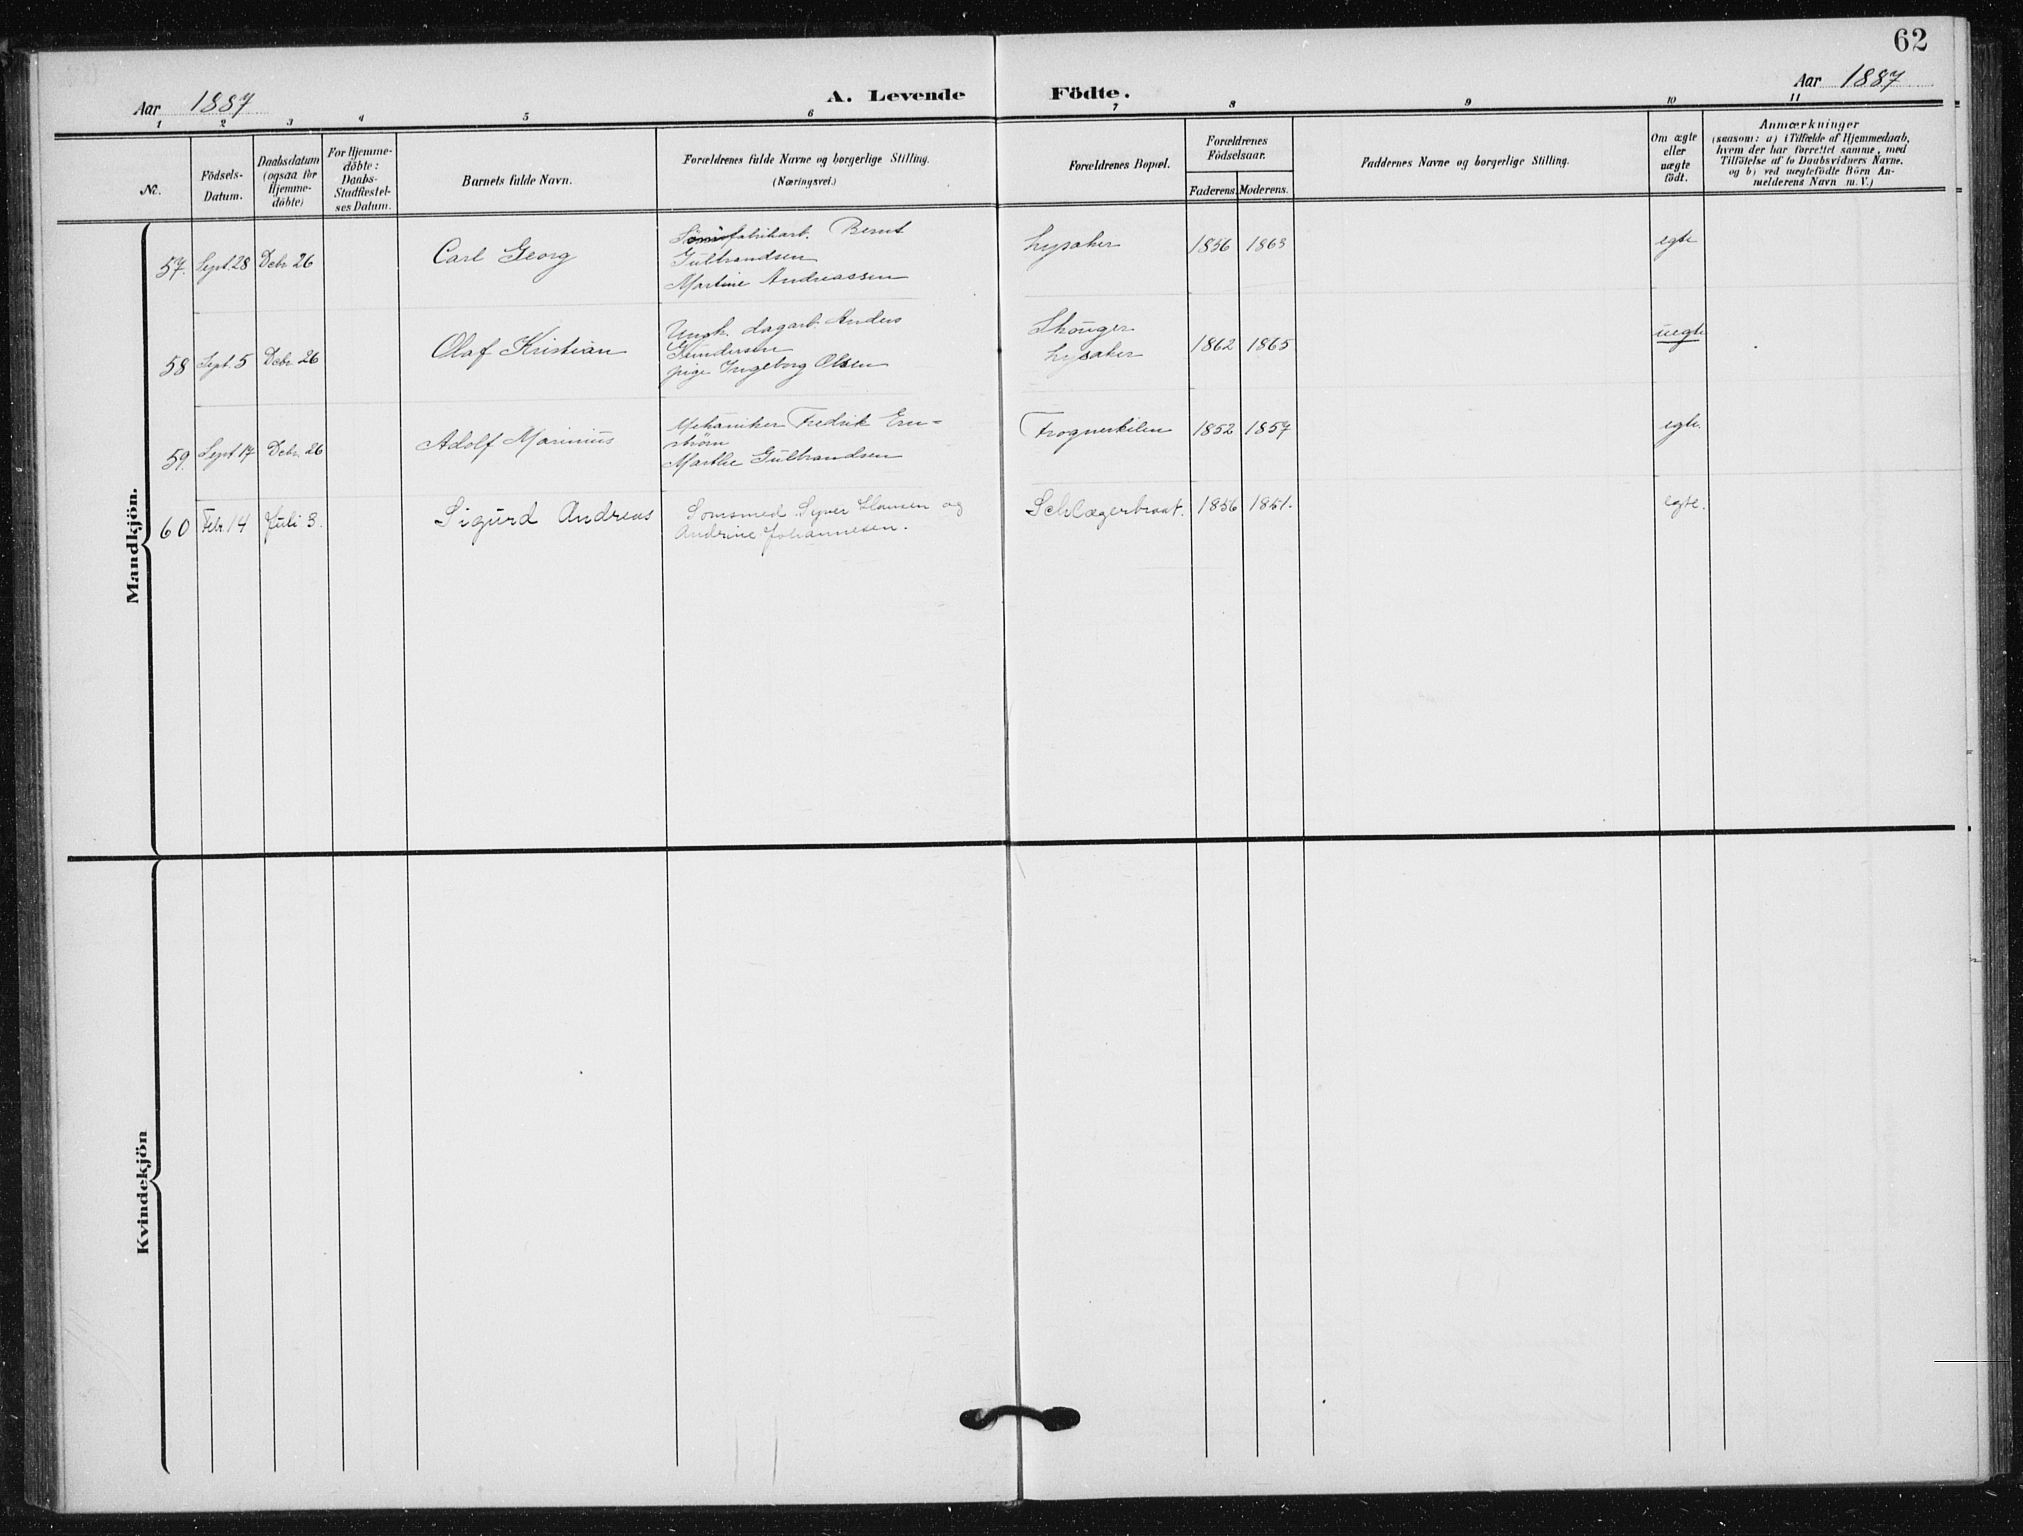 62
Aar 1887 A. Levende Födte. Aar 1887
1 2 3 4 5 6 7 8 9 10 11
No. Födsels-Datum. Daabsdatum (ogsaa for Hjemme-döbte) For Hjemme-döbte: Daabs-Stadfæstel-ses Datum. Barnets fulde Navn. Forældrenes fulde Navne og borgerlige Stilling. (Næringsvei.) Forældrenes Bopæl. Forældrenes Födselsaar. Faderens. Moderens. Faddernes Navne og borgerlige Stilling. Om ægte eller uægte födt. Anmærkninger (saasom: a) i Tilfælde af Hjemmedaab, hvem der har forrettet samme, med Tilföielse af to Daabsvidners Navne. og b) ved uægtefödte Börn An-melderens Navn m. V.)
Mandkjön.
57. Sept. 28 Debr 26 Carl Georg fabrikarb. Bernt Lysaker 1856 1863 egte
Gulbrandsen
Martine Andreassen
58 Sept. 5 Debr 26 Olaf Kristian Ungk. dagarb. Anders 1862 1865 uegte
Gundersen Lysaker
pige Ingeborg Olsen
59. Sept 17 Debr. 26 Adolf Marinius Mekaniker Fredrik Ern= Frognerkilen 1852 1857 egte.
ström
Marthe Gulbrandsen
60 Febr 14 Juli 3. Sigurd Andreas Somsmed Syver Hansen og Schlægerbraat. 1856 1851. egte.
Andrine Johannesen.
Kvindekjön